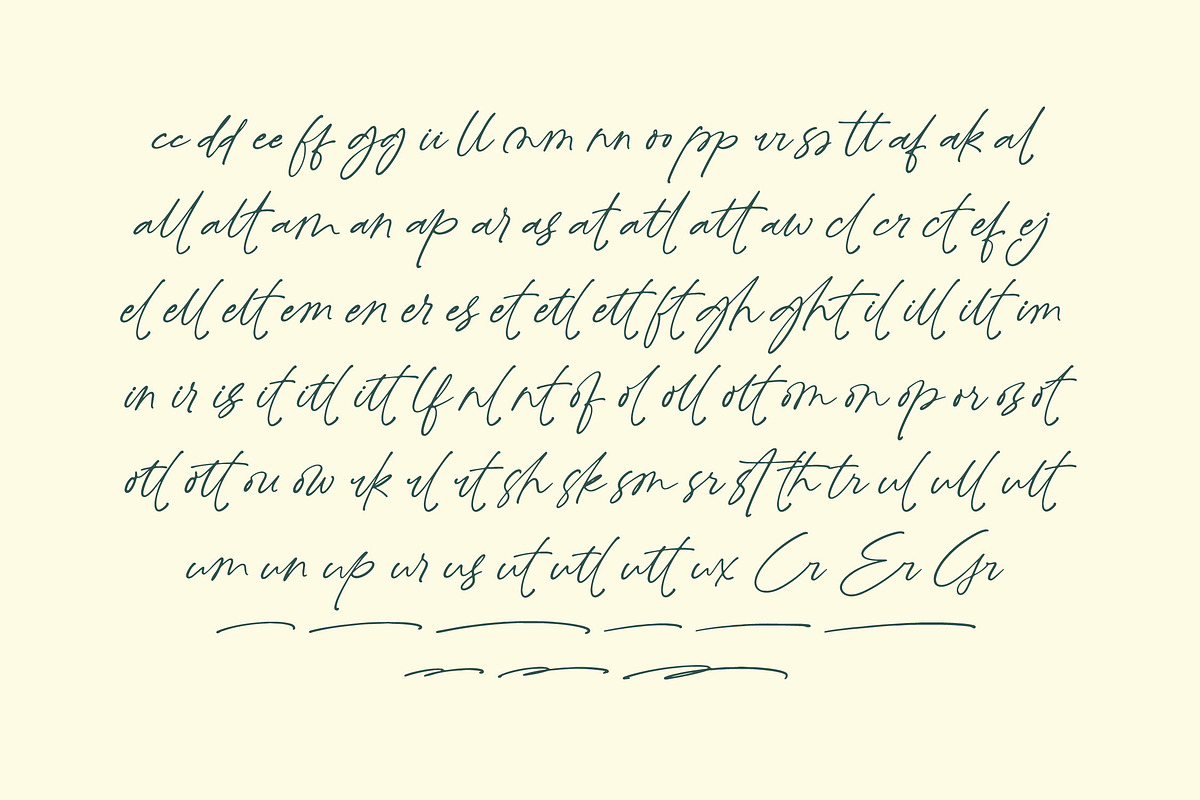 cc dd ee ff gg ii ll mm nn oo pp rr ss tt af ak al
all alt am an ap ar as at atl att aw cl cr ct ef ej
el ell elt em en er es et etl ett ft gh ght il ill ilt im
in ir is it itl itt lf nl nt of ol oll olt om on op or os ot
otl ott ou ow rk rl rt sh sk sm sr st th tr ul ull ult
um un up ur us ut utl utt ux Cr Er Gr